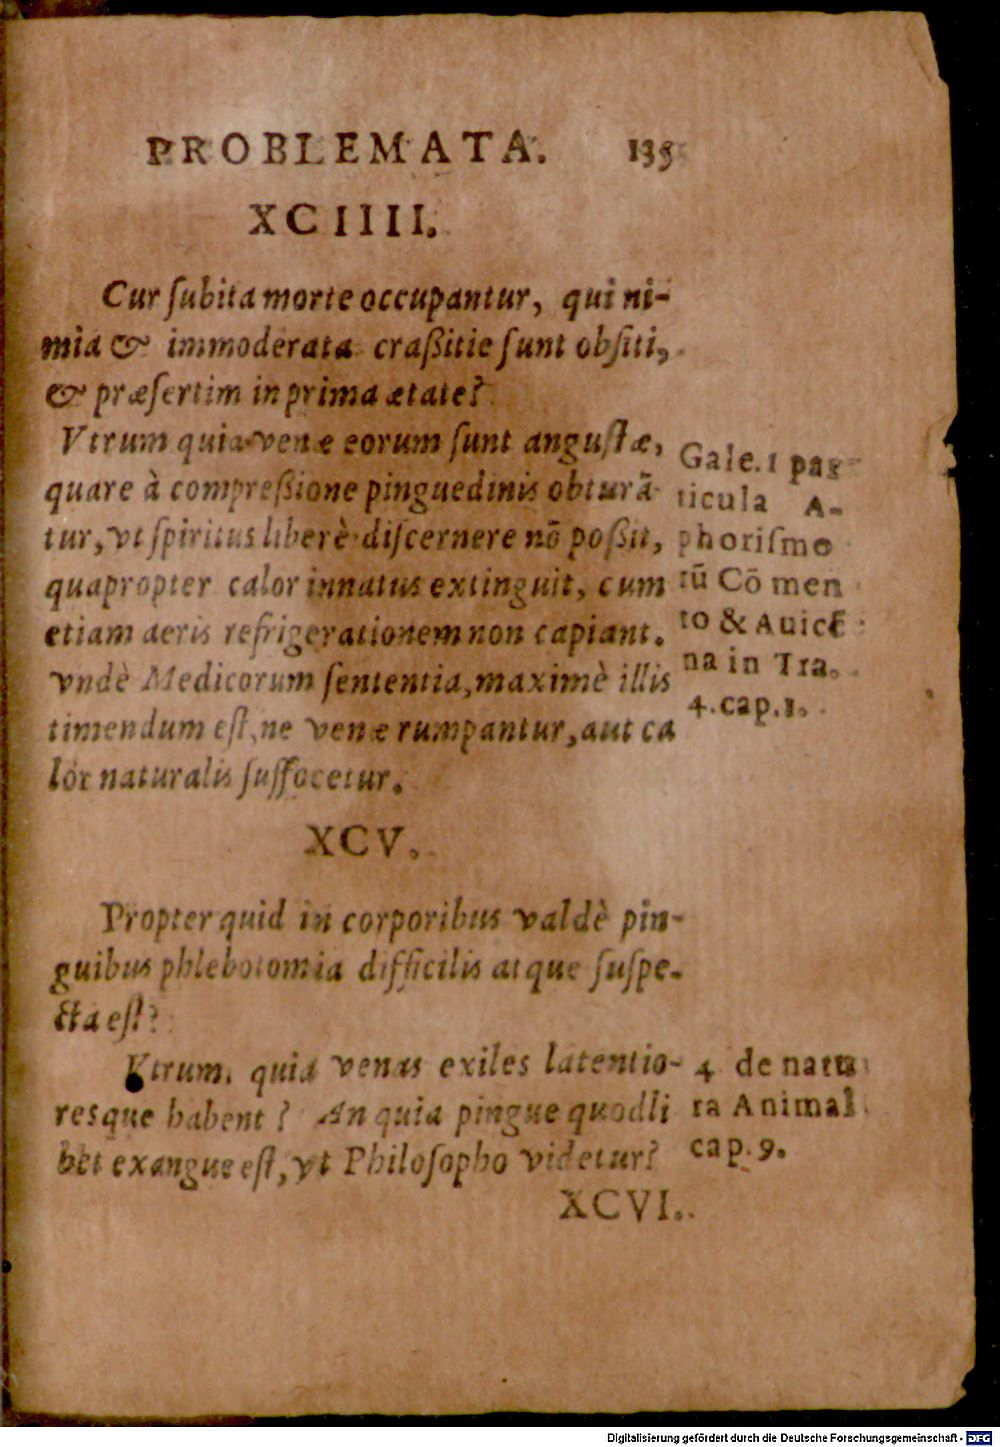 PROBLEMATA. 135
XCIIII.
Cur ſubita morte occupantur, qui ni-
mia & immoderata craßitie ſunt obſiti,
& præſertim in prima ætate?
Vtrum quia venæ eorum ſunt anguſtæ,
quare à compreßione pinguedinis obturã
tur, vt ſpiritus liberè diſcernere nō poßit,
quapropter calor innatus extinguit, cum
etiam aeris refrigerationem non capiant.
vndè Medicorum ſententia, maximè illis
timendum eſt, ne venæ rumpantur, aut ca
lor naturalis ſuffocetur.
Gale. 1 par
ticula A-
phoriſmo
rū Cō men
to & Auicē
na in Tra.
4. cap. 1.
XCV.
Propter quid in corporibus valdè pin-
guibus phlebotomia difficilis atque ſuſpe-
cta eſt?
Vtrum, quia venas exiles latentio-
resque habent? An quia pingue quodli
bet exangue eſt, vt Philoſopho videtur?
4 de natu
ra Animal.
cap. 9.
XCVI.
Digitalisierung gefördert durch die Deutsche Forschungsgemeinschaft - DFG